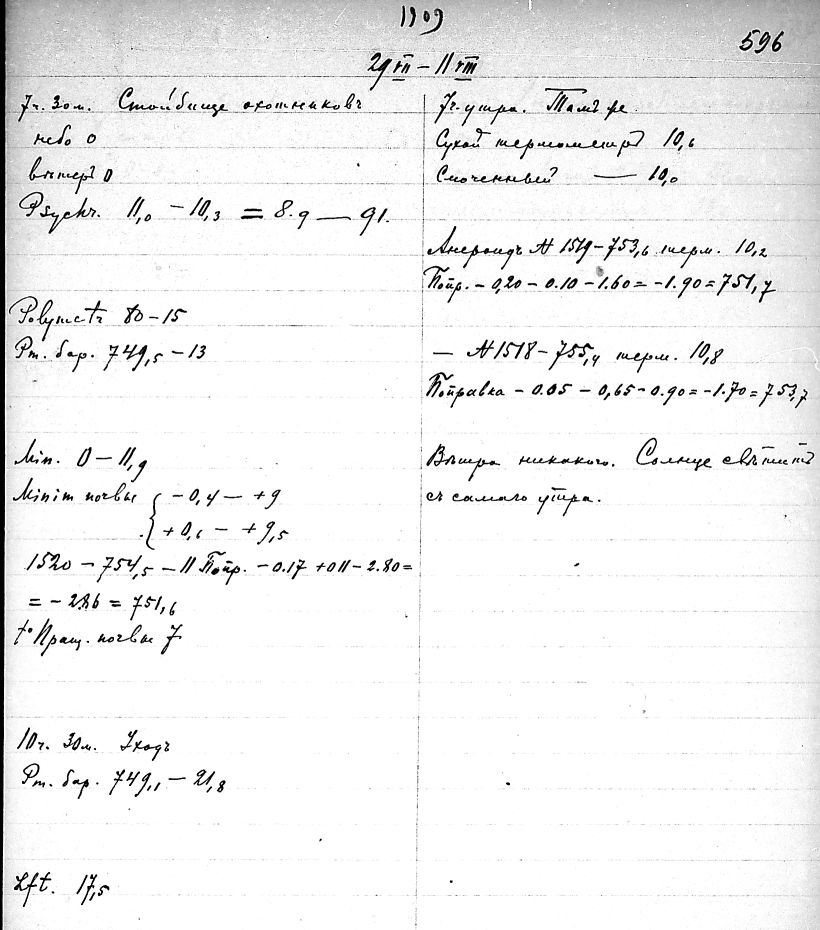 1909
596
29 VII – 11 VIII
7ч. 30м. Стойбище охотниковъ
небо 0
вѣтеръ 0
Psychr. 11,0 – 10,3 = 8.9 — 91.
Polymetr 80 – 15
Рт. бар. 749,5 – 13
Min. 0 – 11,9
Minim почвы { – 0,4 – +9
+ 0,6 – +9,5
1520 – 754,5 – 11 Попр. – 0.17 + 0 11 – 2.80 =
= – 2.86 = 751,6
t° Пращ. почвы 7
10ч. 30м. Уходъ
Рт. бар. 749,1 – 21,8
Lft. 17,5
7ч. утра. Тамъ же.
Сухой термометръ 10,6
Смоченный — 10,0
Анероидъ № 1519 – 753,6 терм. 10,2
Попр. – 0,20 – 0.10 – 1.60 = – 1.90 = 751,7
— № 1518 – 755,4 терм. 10,8
Поправка – 0.05 – 0,65 – 0.90 = – 1.70 = 753,7
Вѣтра никакого. Солнце свѣтитъ
съ самаго утра.